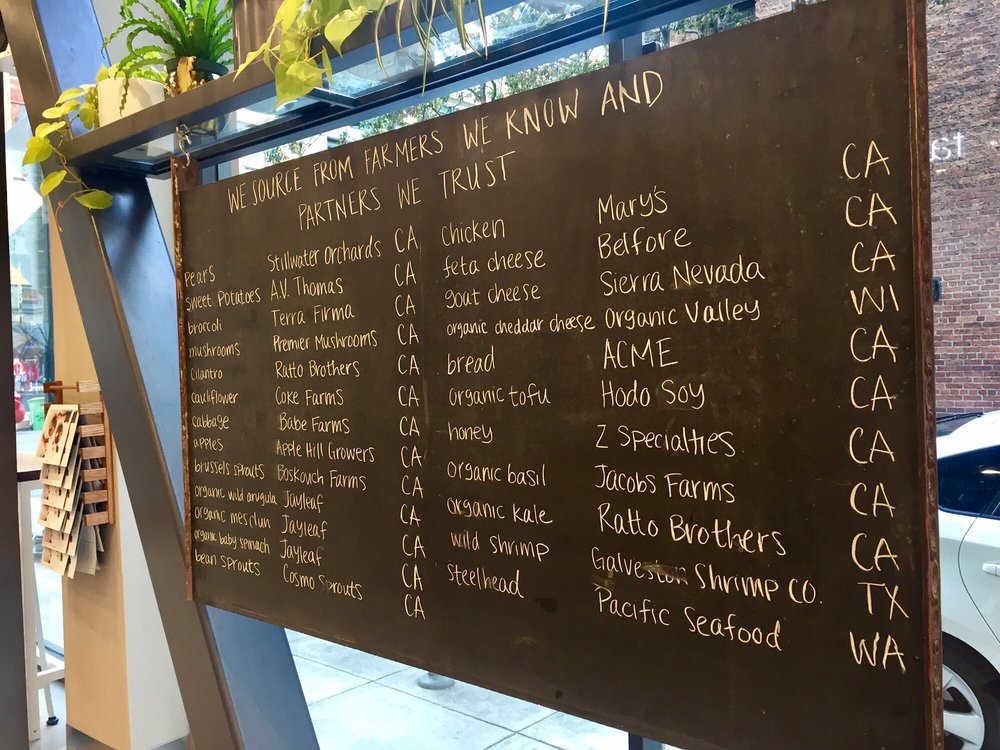 WE SOURCE FROM FARMERS WE KNOW AND
PARTNERS WE TRUST
Pears Stillwater Orchards CA
Sweet Potatoes A.V. Thomas CA
broccoli Terra Firma CA
mushrooms Premier Mushrooms CA
Cilantro Ratto Brothers CA
Cauliflower Coke Farms CA
cabbage Babe Farms CA
apples Apple Hill Growers CA
brussels sprouts Boskouch Farms CA
organic wild arugula Jayleaf CA
organic mesclun Jayleaf CA
organic baby spinach Jayleaf CA
bean sprouts Cosmo Sprouts CA
Chicken Mary's CA
feta cheese Belfore CA
goat cheese Sierra Nevada CA
organic cheddar cheese Organic Valley WI
bread ACME CA
organic tofu Hodo Soy CA
honey Z Specialties CA
organic basil Jacobs Farms CA
organic kale Ratto Brothers CA
wild shrimp Galveston Shrimp CO. TX
Steelhead Pacific Seafood WA